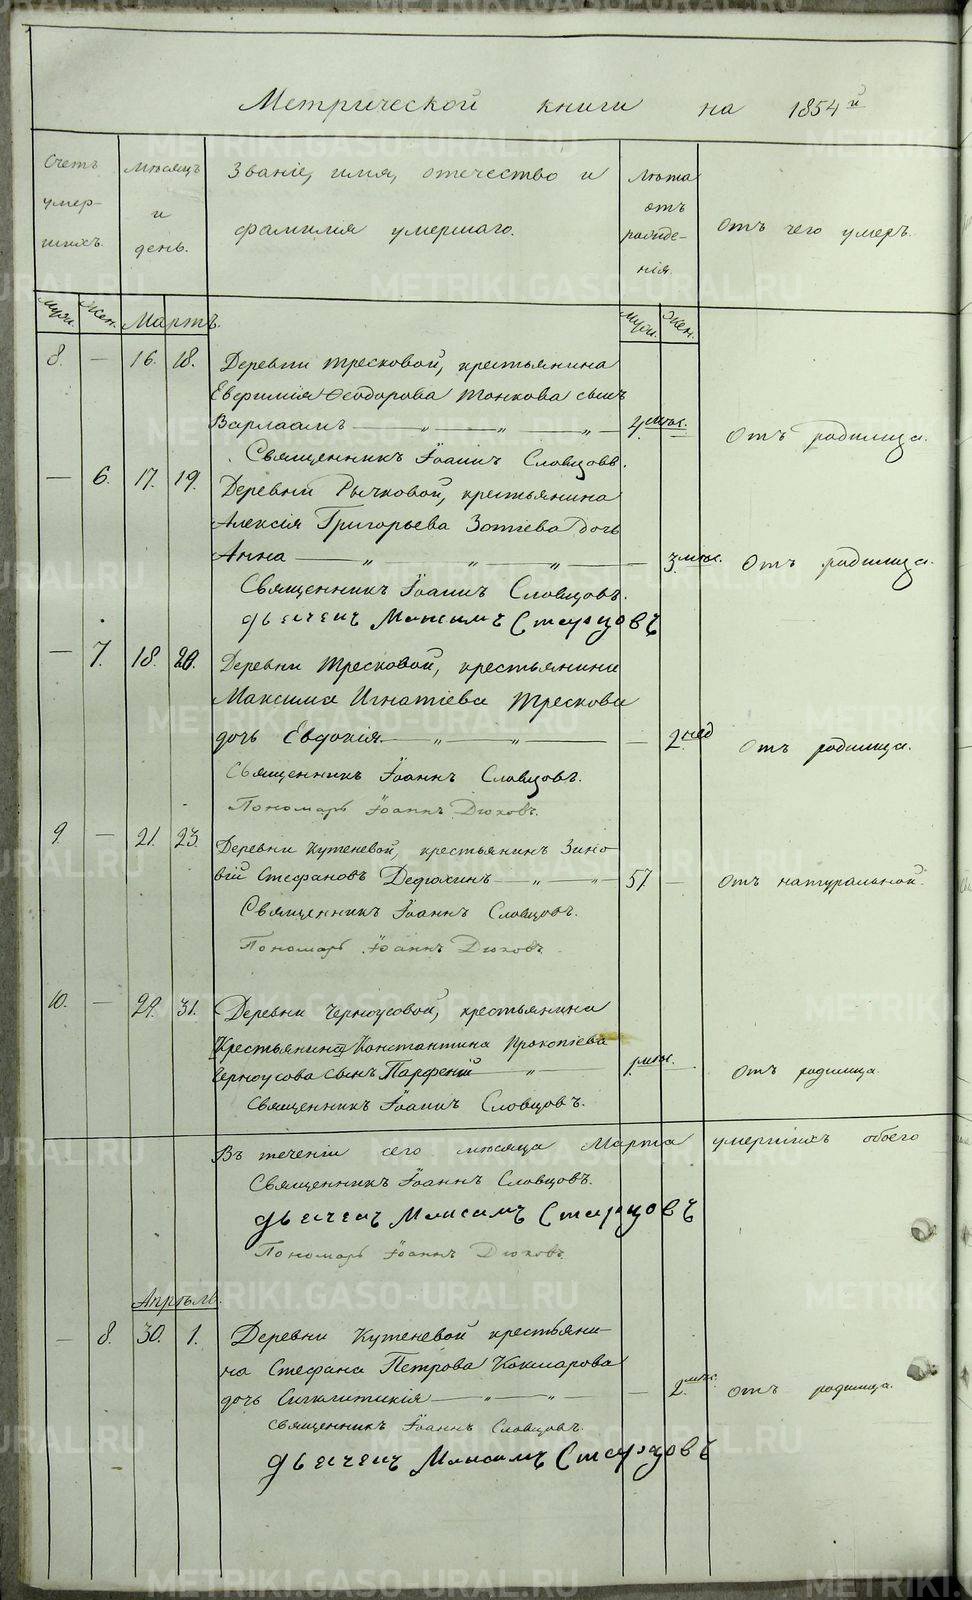 Метрической книги на 1854й
Счетъ умер- шихъ.
Мѣсяцъ и день.
Званіе, имя, отечество и
фамилія умершаго.
Лѣта отъ рожде- нія.
Отъ чего умеръ.
Муж. Жен. Мартъ. Муж. Жен.
8. — 16. 18. Деревни Тресковой, крестьянина
Евфимія Ѳеодорова Тонкова сынъ
Варлаамъ — „ — „ — „ — 4 мѣс. Отъ родимца.
Священникъ Іоаннъ Словцовъ.
— 6. 17. 19. Деревни Рычковой, крестьянина
Алексія Григорьева Зотіева дочь
Анна — „ — „ — „ — 3 мѣс. Отъ родимца.
Священникъ Іоаннъ Словцовъ.
Дьячекъ Максимъ Старцовъ
— 7. 18. 20. Деревни Тресковой, крестьянина
Максима Игнатіева Трескова
дочь Евдокія — „ — „ — — 2 нед Отъ родимца.
Священникъ Іоаннъ Словцовъ.
Пономарь Іоаннъ Дюковъ.
9. — 21. 23. Деревни Кутеневой, крестьянинъ Зино-
вій Стефановъ Дефохинъ — „ — „ — 57 — Отъ натуральной.
Священникъ Іоаннъ Словцовъ.
Пономарь Іоаннъ Дюковъ.
10. — 29. 31. Деревни Черноусовой, крестьянина
Крестьянина Константина Прокопіева
Черноусова сынъ Парфеній — „ — 1 мѣс. Отъ родимца.
Священникъ Іоаннъ Словцовъ.
Въ теченіи сего мѣсяца Марта умершихъ обоего
Священникъ Іоаннъ Словцовъ.
Дьячекъ Максимъ Старцовъ
Пономарь Іоаннъ Дюковъ.
Апрѣль.
— 8. 30. 1. Деревни Кутеневой крестьяни-
на Стефана Петрова Кокшарова
дочь Сигклитикія — „ — „ — — 2 мѣс. Отъ родимца.
Священникъ Іоаннъ Словцовъ.
Дьячекъ Максимъ Старцовъ
METRIKI.GASO-URAL.RU